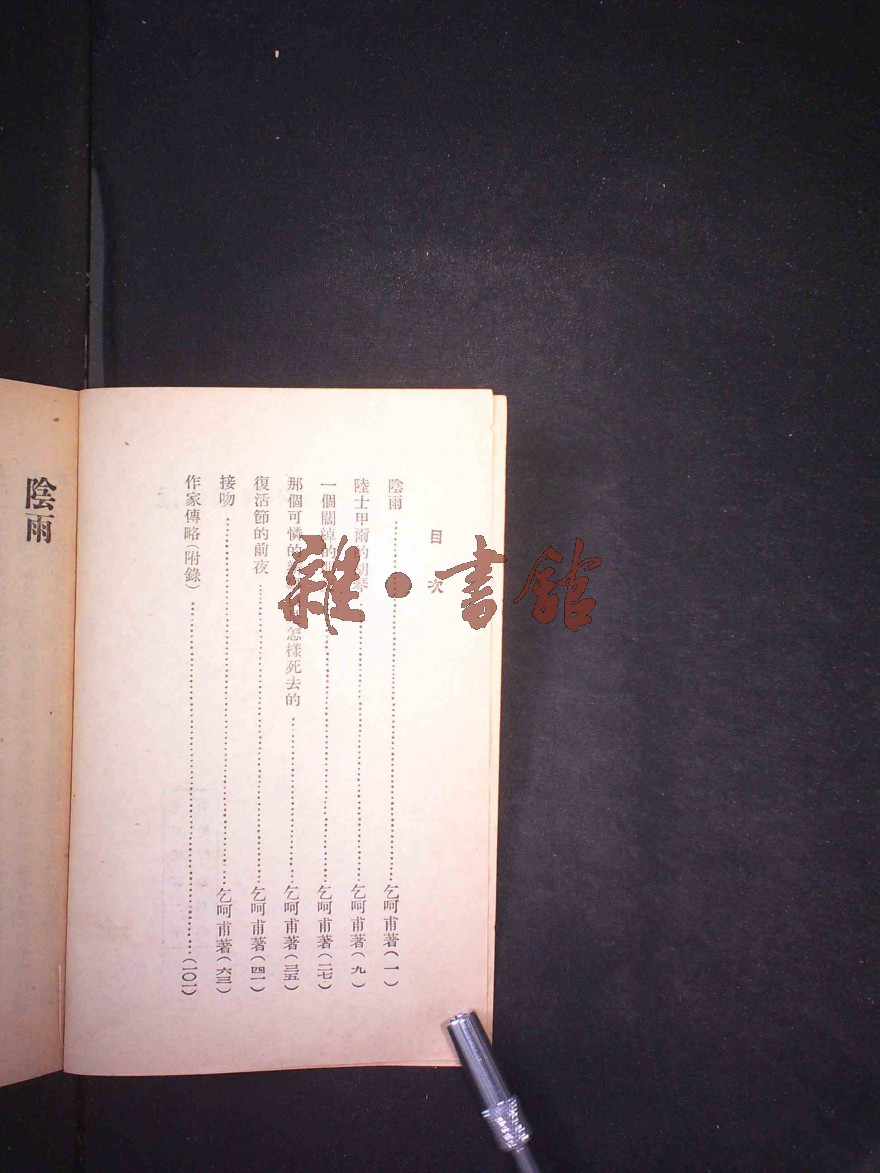 目次
陰雨……乞呵甫著(一)
陸士甲爾的胡琴……乞呵甫著(九)
一個闊綽的……乞呵甫著(二七)
那個可憐的……怎樣死去的……乞呵甫著(三五)
復活節的前夜……乞呵甫著(四一)
接吻……乞呵甫著(六三)
作家傳略(附錄)……(一〇一)
陰雨
雜·書館